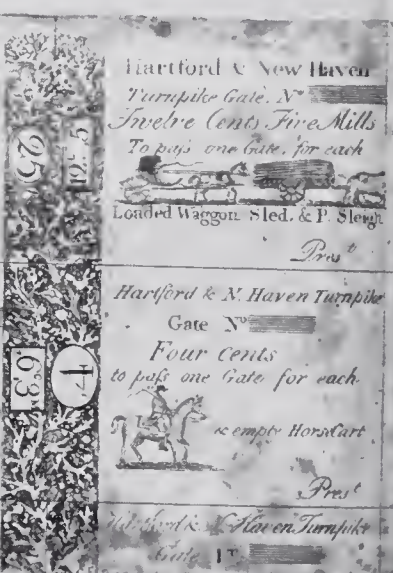 Hartford & New Haven
Turnpike Gate. Nº
Twelve Cents Five Mills
To paſs one Gate, for each
Loaded Waggon, Sled, & P. Sleigh
Presᵗ
25
12 5
Hartford & N. Haven Turnpike
Gate Nº
Four Cents
to paſs one Gate for each
& empty HorseCart
Presᵗ
4
Hartford & N. Haven Turnpike
Gate